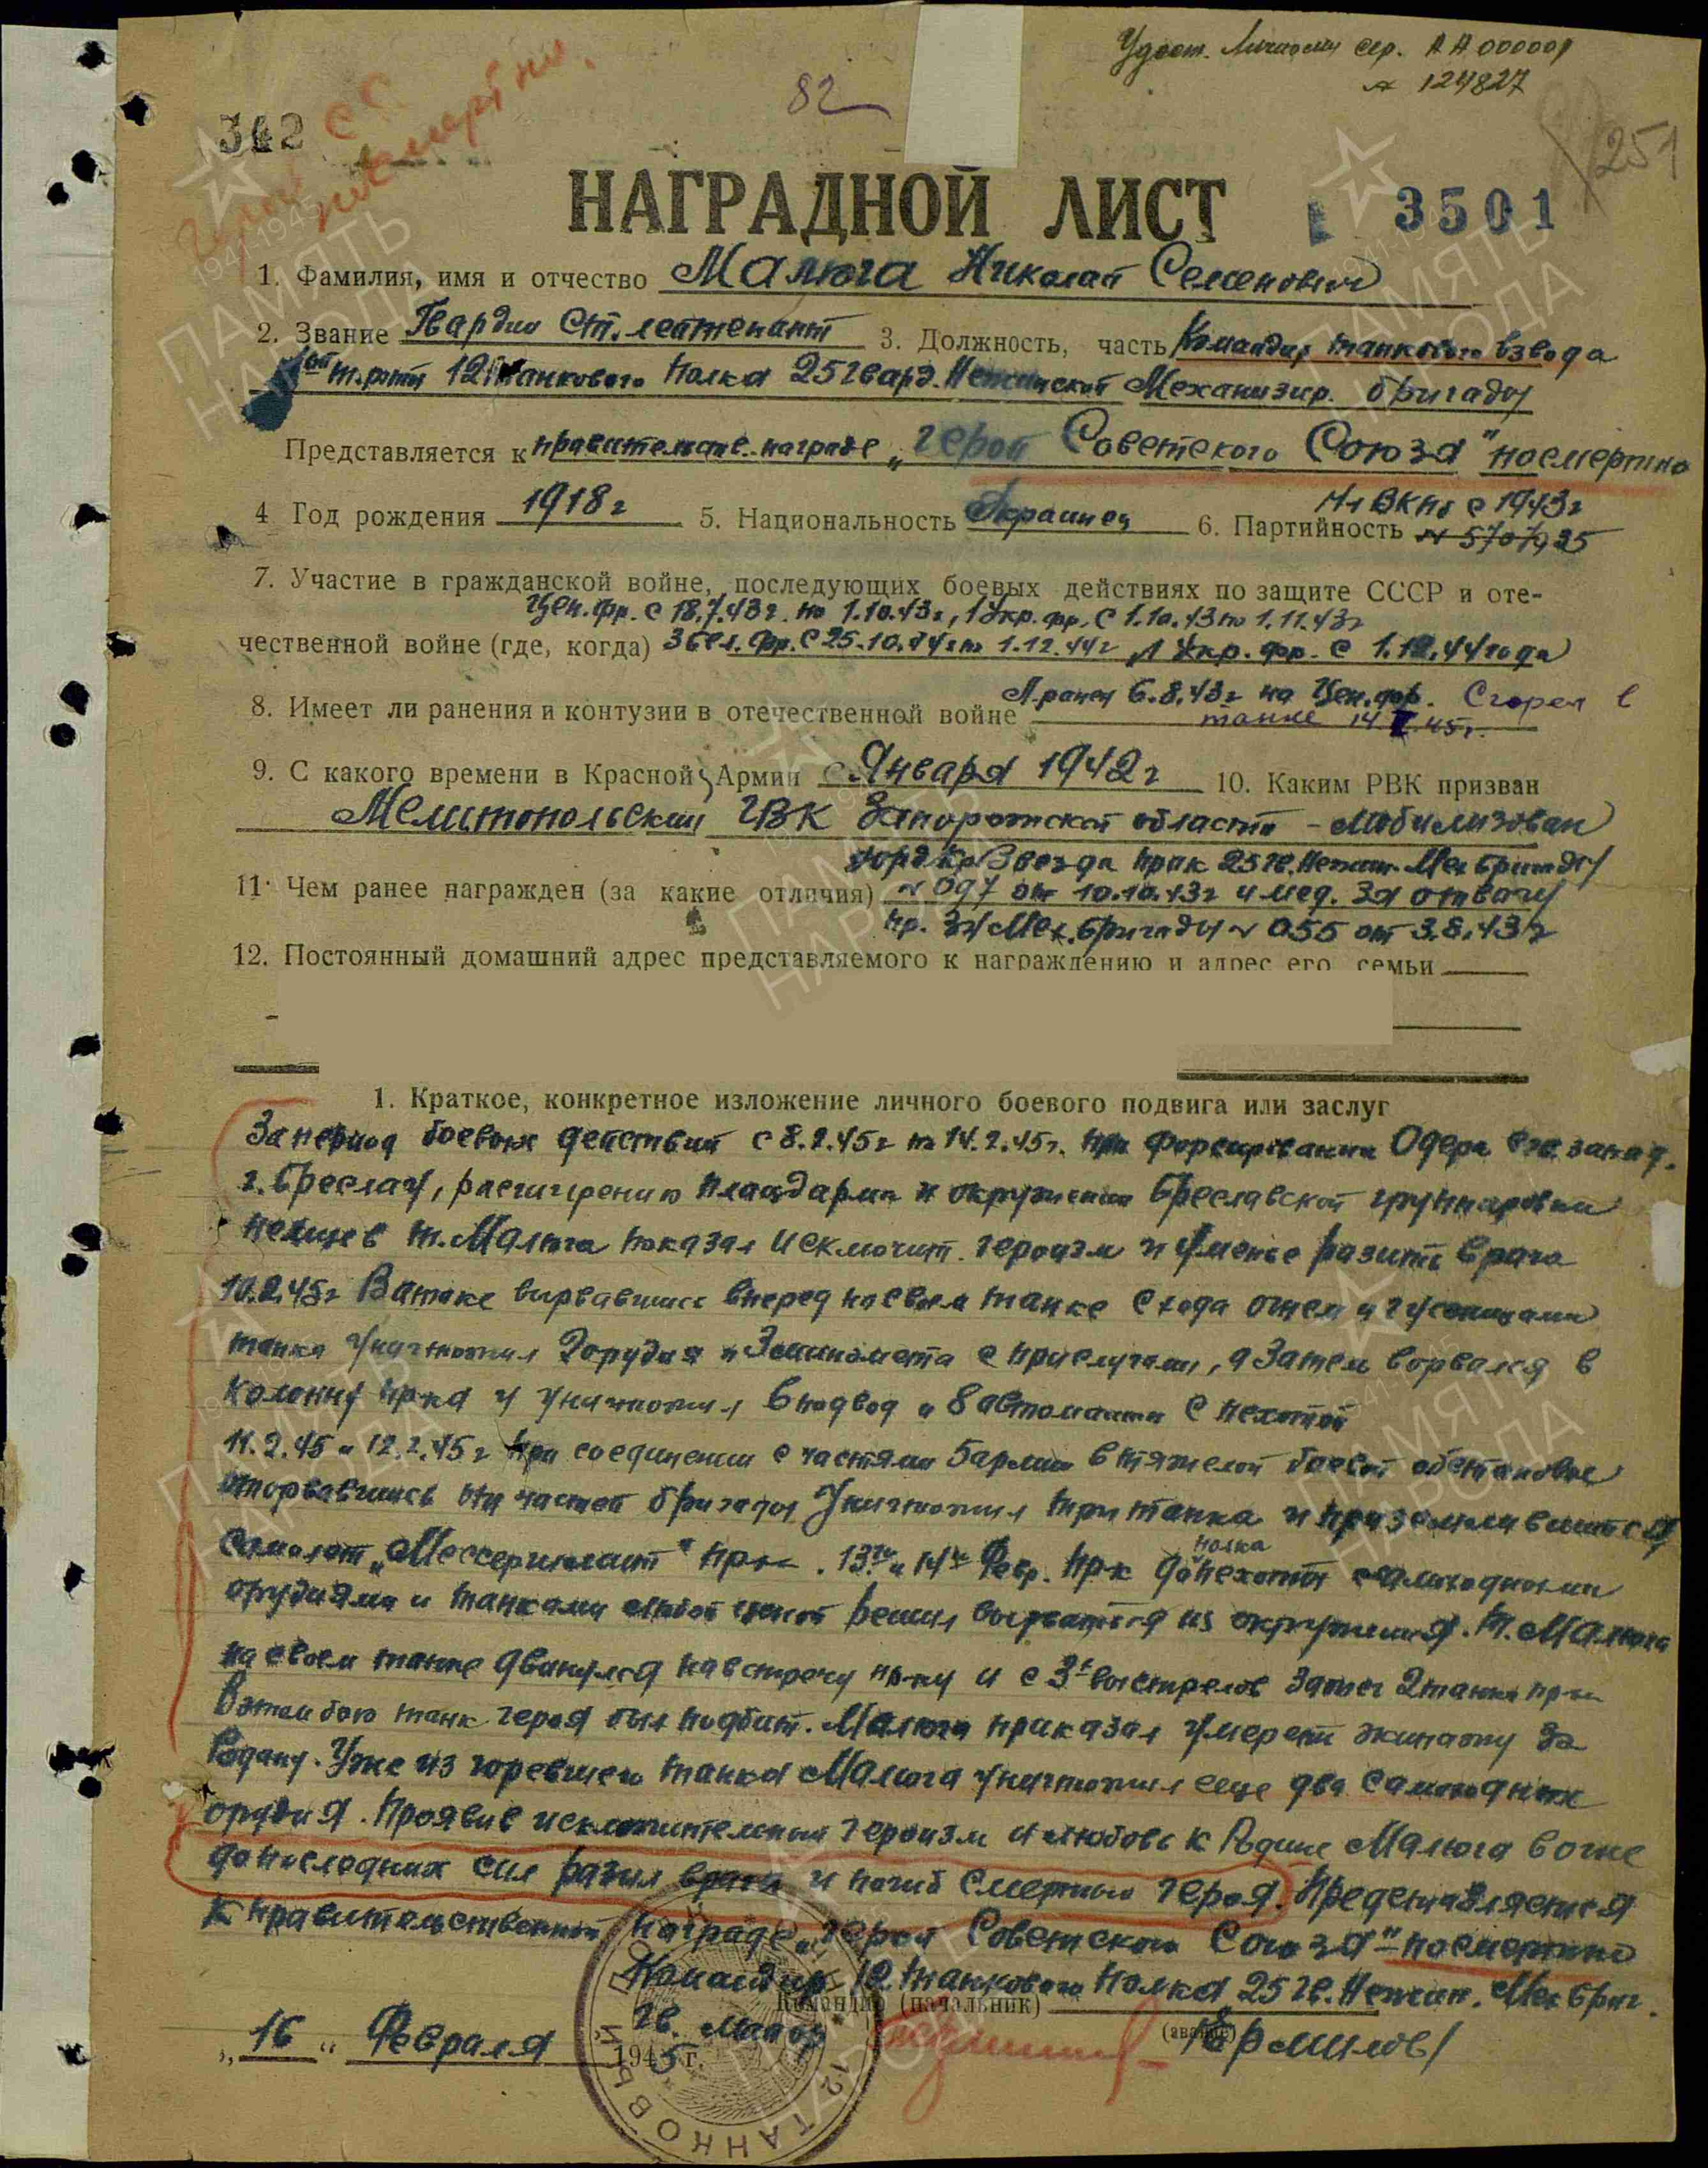 Удост. Личности сер. АА 000001
№ 124827
82
342
Герой СС
посмертно.
251
НАГРАДНОЙ ЛИСТ
3501
1. Фамилия, имя и отчество Малюга Николай Семенович
2. Звание Гвардии Ст. лейтенант 3. Должность, часть Командир танкового взвода
1ой т.роты 12 танкового полка 25 гвард. Нежинской Механизир. бригады
Представляется к правительств. награде „Герой Советского Союза" посмертно
4 Год рождения 1918 г 5. Национальность Украинец 6. Партийность Чл ВКПб с 1943 г
№ 5707925
7. Участие в гражданской войне, последующих боевых действиях по защите СССР и оте-
Цен. фр. с 18.7.43 г. по 1.10.43 г, 1 Укр. фр. с 1.10.43 по 1.11.43 г
чественной войне (где, когда) 3 Бел. фр. с 25.10.44 г по 1.12.44 г, 1 Укр. фр. с 1.12.44 года
8. Имеет ли ранения и контузии в отечественной войне Л. ранен 6.8.43 г на Цен. фр. Сгорел в
танке 14.II.45 г.
9. С какого времени в Красной Армии с Января 1942 г 10. Каким РВК призван
Мелитопольским ГВК Запорожской области - мобилизован
орд Кр Звезда прик 25 гв. Нежин. Мех Бригады
11. Чем ранее награжден (за какие отличия) № 097 от 10.10.43 г и мед. За отвагу
пр. Мех. бригады № 055 от 3.8.43 г
12. Постоянный домашний адрес представляемого к награждению и адрес его семьи
1. Краткое, конкретное изложение личного боевого подвига или заслуг
За период боевых действий с 8.2.45 г по 14.2.45 г. при форсировании Одера сев. запад.
г. Бреслау, расширению плацдарма и окружении Бреславской группировки
немцев т. Малюга показал исключит. героизм и уменье разить врага
10.2.45 г В атаке вырвавшись вперед на своем танке с хода огнем и гусеницами
танка уничтожил 2 орудия и 3 миномета с прислугами, а затем ворвался в
колонну пр-ка и уничтожил 6 подвод и 8 автомашин с пехотой
11.2.45 и 12.2.45 г При соединении с частями 5 армии в тяжелой боевой обстановке
оторвавшись от частей бригады уничтожил три танка и приземлившийся
самолет „Мессершмит" пр-ка. 13го и 14го Февр. пр-к до полка пехоты с самоходными
орудиями и танками любой ценой решил вырваться из окружения. т. Малюга
на своем танке двинулся навстречу пр-ку и с 3х выстрелов зажег 2 танка пр-ка
В этом бою танк героя был подбит. Малюга приказал умереть экипажу за
Родину. Уже из горевшего танка Малюга уничтожил еще два самоходных
орудия. Проявив исключительный героизм и любовь к Родине Малюга в огне
до последних сил разил врага и погиб смертью героя. Представляется
к правительственной награде „Герой Советского Союза" - посмертно
Командир 12 танкового полка 25 гв. Нежин. Мех Бриг.
Командир (начальник)
гв. майор /Ермилов/
(звание)
„16" Февраля 1945 г.
12 ТАНКОВЫЙ
ПАМЯТЬ
НАРОДА
1941-1945